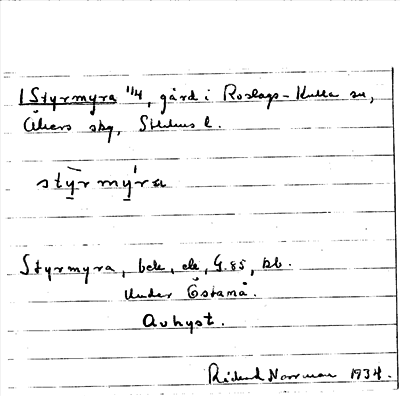 1 Styrmyra 1/4, gård i Roslags-Kulla sn,
Åkers skg, Sthlms l.
stȳrmy´ra
Styrmyra, bek, ek, G.85, kb.
Under Östanå.
Avhyst.
Rickard Norrman 1934.